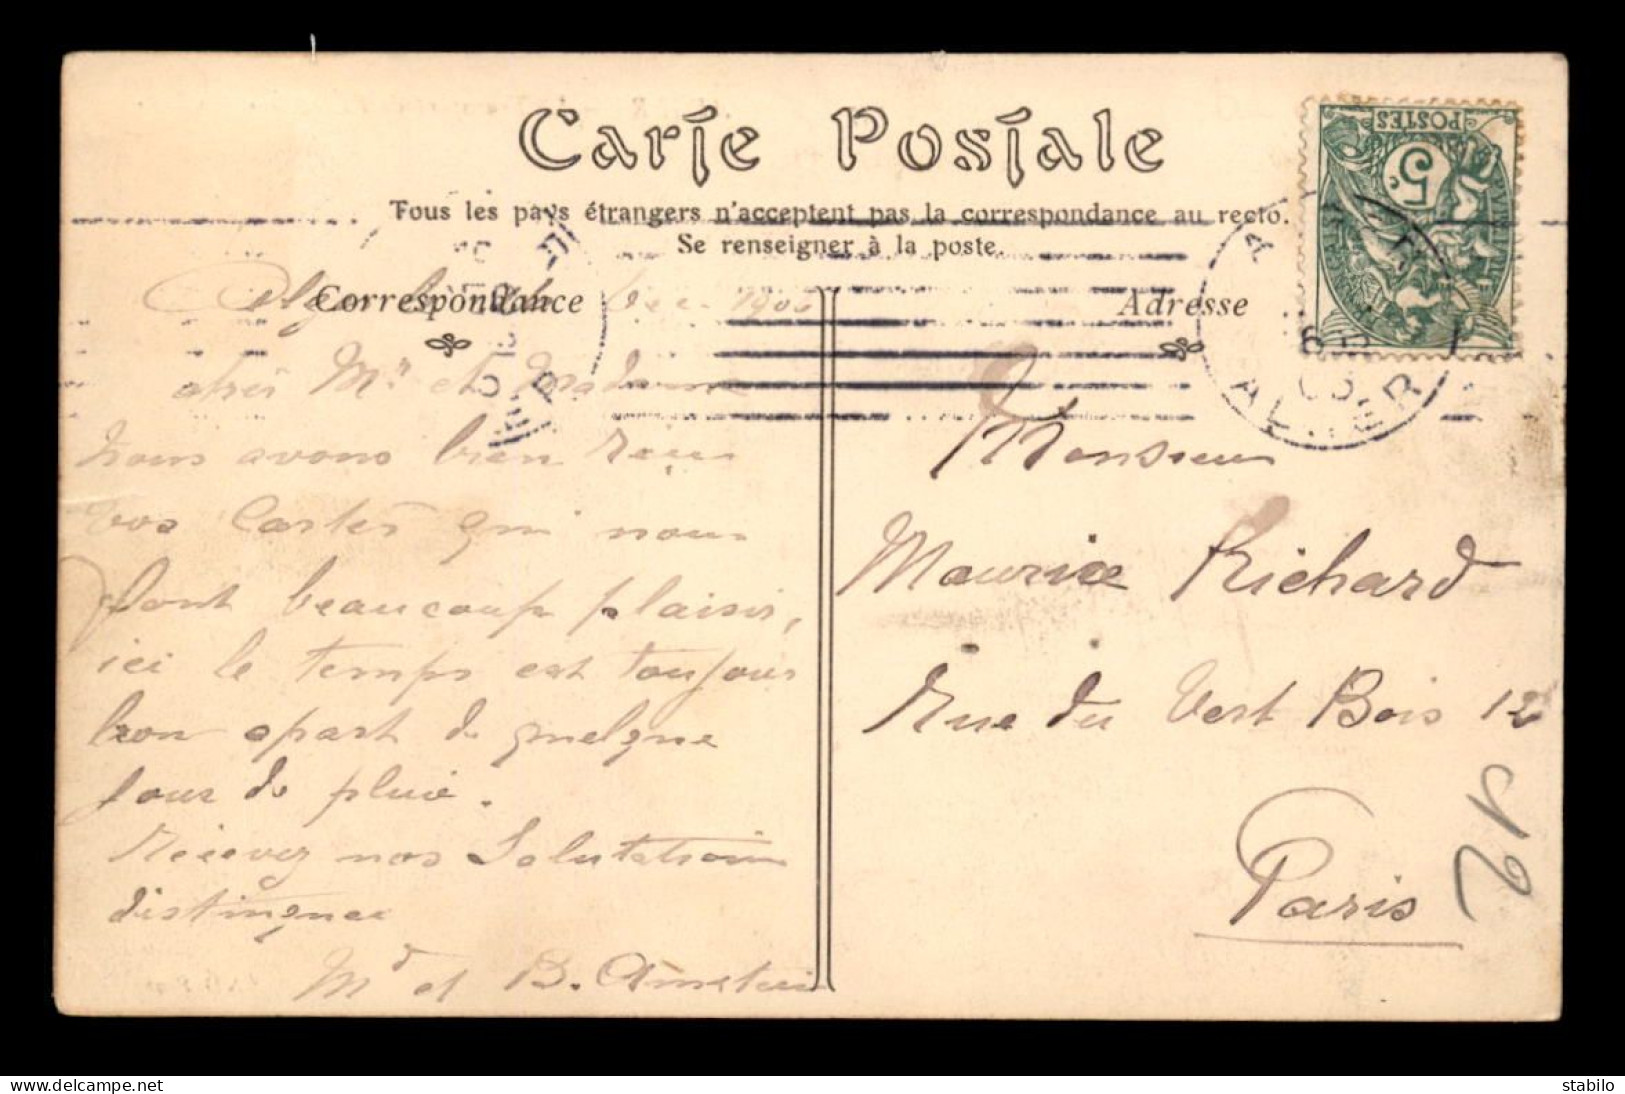 Carte Postale
Tous les pays étrangers n'acceptent pas la correspondance au recto.
Se renseigner à la poste.
Correspondance
Adresse
POSTES
5c
ALGER
Alger le Dec 1906
cher Mr et Madame
nous avons bien reçu
vos cartes qui nous
font beaucoup plaisir,
ici le temps est toujours
bon apart de quelque
jour de pluie.
Recevez nos Salutation
distinguee
Md et B.
Monsieur
Maurice Richard
Rue du Vert Bois 12
Paris
12
© delcampe.net
stabilo